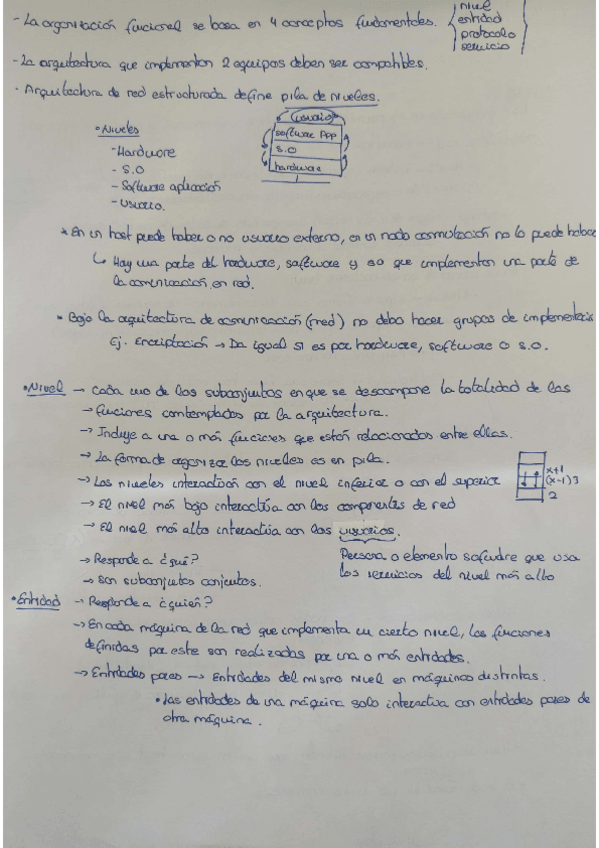 - La organización funcional se basa en 4 conceptos fundamentales.
nivel
entidad
protocolo
servicio
- La arquitectura que implementan 2 equipos deben ser compatibles.
- Arquitectura de red estructurada define pila de niveles.
• Niveles
- Hardware
- S.O
- Software aplicación
- Usuario.
usuario
software App
S.O
hardware
* En un host puede haber o no usuario externo, en un nodo conmutación no lo puede haber
↳ Hay una parte del hardware, software y so que implementan una parte de
la comunicación en red.
• Bajo la arquitectura de comunicación (red) no debo hacer grupos de implementación
Ej. Encriptación → Da igual si es por hardware, software o S.O.
• Nivel → Cada uno de los subconjuntos en que se descompone la totalidad de las
→ funciones contemplados por la arquitectura.
→ Incluye a una o más funciones que están relacionados entre ellas.
→ La forma de organizar los niveles es en pila.
→ Los niveles interactúan con el nivel inferior o con el superior
→ El nivel más bajo interactúa con los componentes de red
→ El nivel más alto interactúa con los usuarios.
x+1
(x-1) 3
2
Persona o elemento software que usa
los servicios del nivel más alto
→ Responde a ¿qué?
→ Son subconjuntos conjuntos.
• Entidad → Responde a ¿quién?
→ En cada máquina de la red que implementa un cierto nivel, las funciones
definidas por este son realizadas por una o más entidades.
→ Entidades pares → Entidades del mismo nivel en máquinas distintas.
• Las entidades de una máquina solo interactúa con entidades pares de
otra máquina.